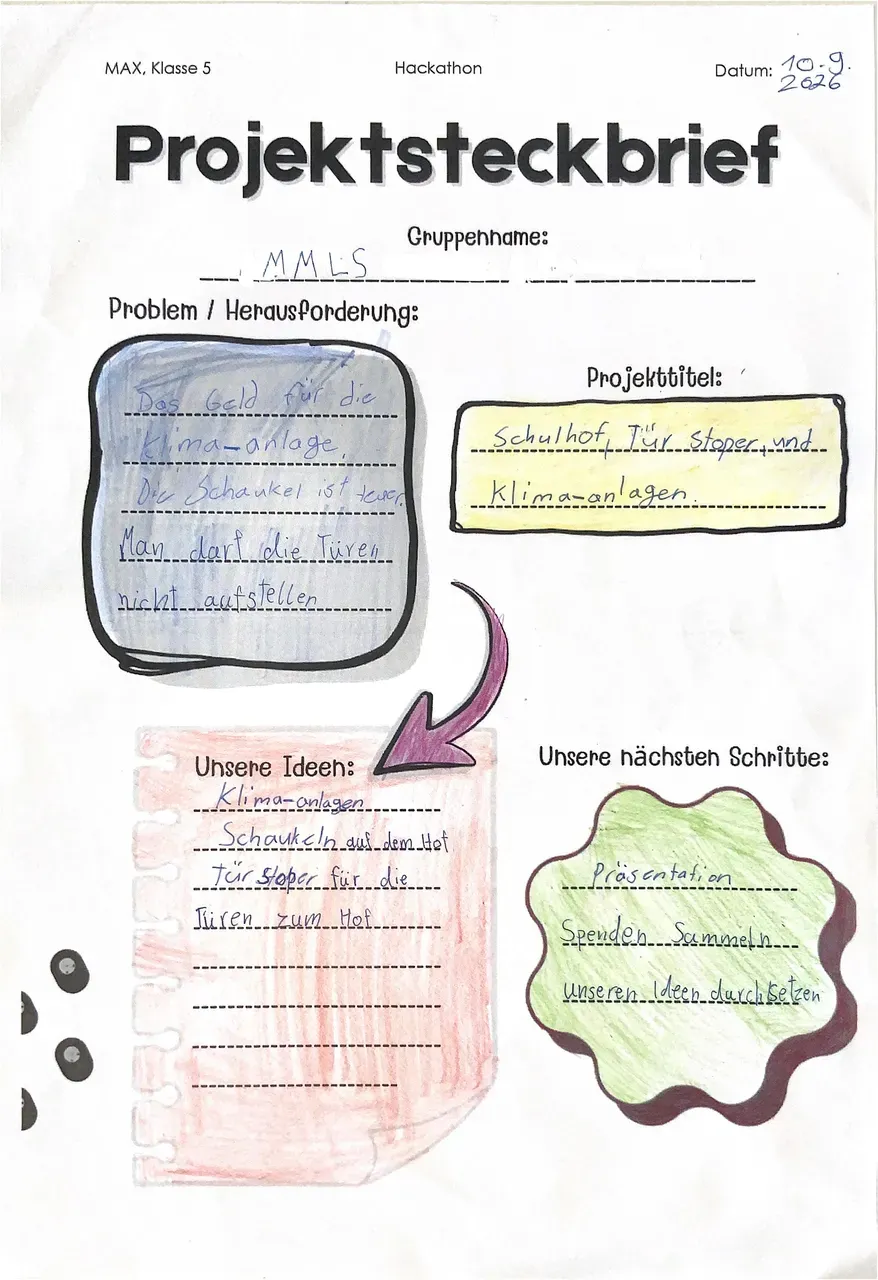 MAX, Klasse 5
Hackathon
Datum: 10.9.
2026
Projektsteckbrief
Gruppenname:
MMLS
Problem / Herausforderung:
Das Geld für die
Klima-anlage.
Die Schaukel ist teuer.
Man darf die Türen
nicht aufstellen
Projekttitel:
Schulhof, Tür stoper, und
Klima-anlagen.
Unsere Ideen:
Klima-anlagen
Schaukeln auf dem Hof
Tür stoper für die
Türen zum Hof
Unsere nächsten Schritte:
Präsentation
Spenden Sammeln
unseren Ideen durchsetzen